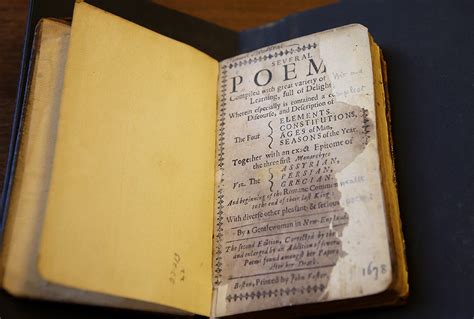 SEVERAL
POEM
Compiled with great variety of Wit and
Learning, full of Delight,
Wherein especially is contained a compleat
Discourse, and Description of
The Four { ELEMENTS.
CONSTITUTIONS,
AGES of Man,
SEASONS of the Year.
Together with an exact Epitome of
the three first Monarchyes
Viz. The { ASSYRIAN,
PERSIAN,
GRECIAN.
And beginning of the Romane Common wealth
to the end of their last King:
With diverse other pleasant & serious
By a Gentlewoman in New-England.
The second Edition, Corrected by the
and enlarged by an Addition of several
Poems found amongst her Papers
after her Death.
Boston, Printed by John Foster,
1678